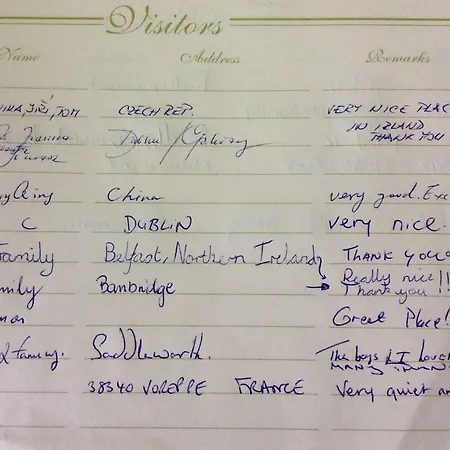 Visitors
Name Address Remarks
JIŘÍ, TOM CZECH REP. VERY NICE PLAC
IN IZLAND
THANK YOU
China very good. Exc
C DUBLIN very nice.
Family Belfast, Northern Ireland THANK YOU
Really nice
mily Banbridge Thank you!!
Great Place!
& Family. Saddleworth. The boys & I
MANY
38340 VOREPPE FRANCE Very quiet an